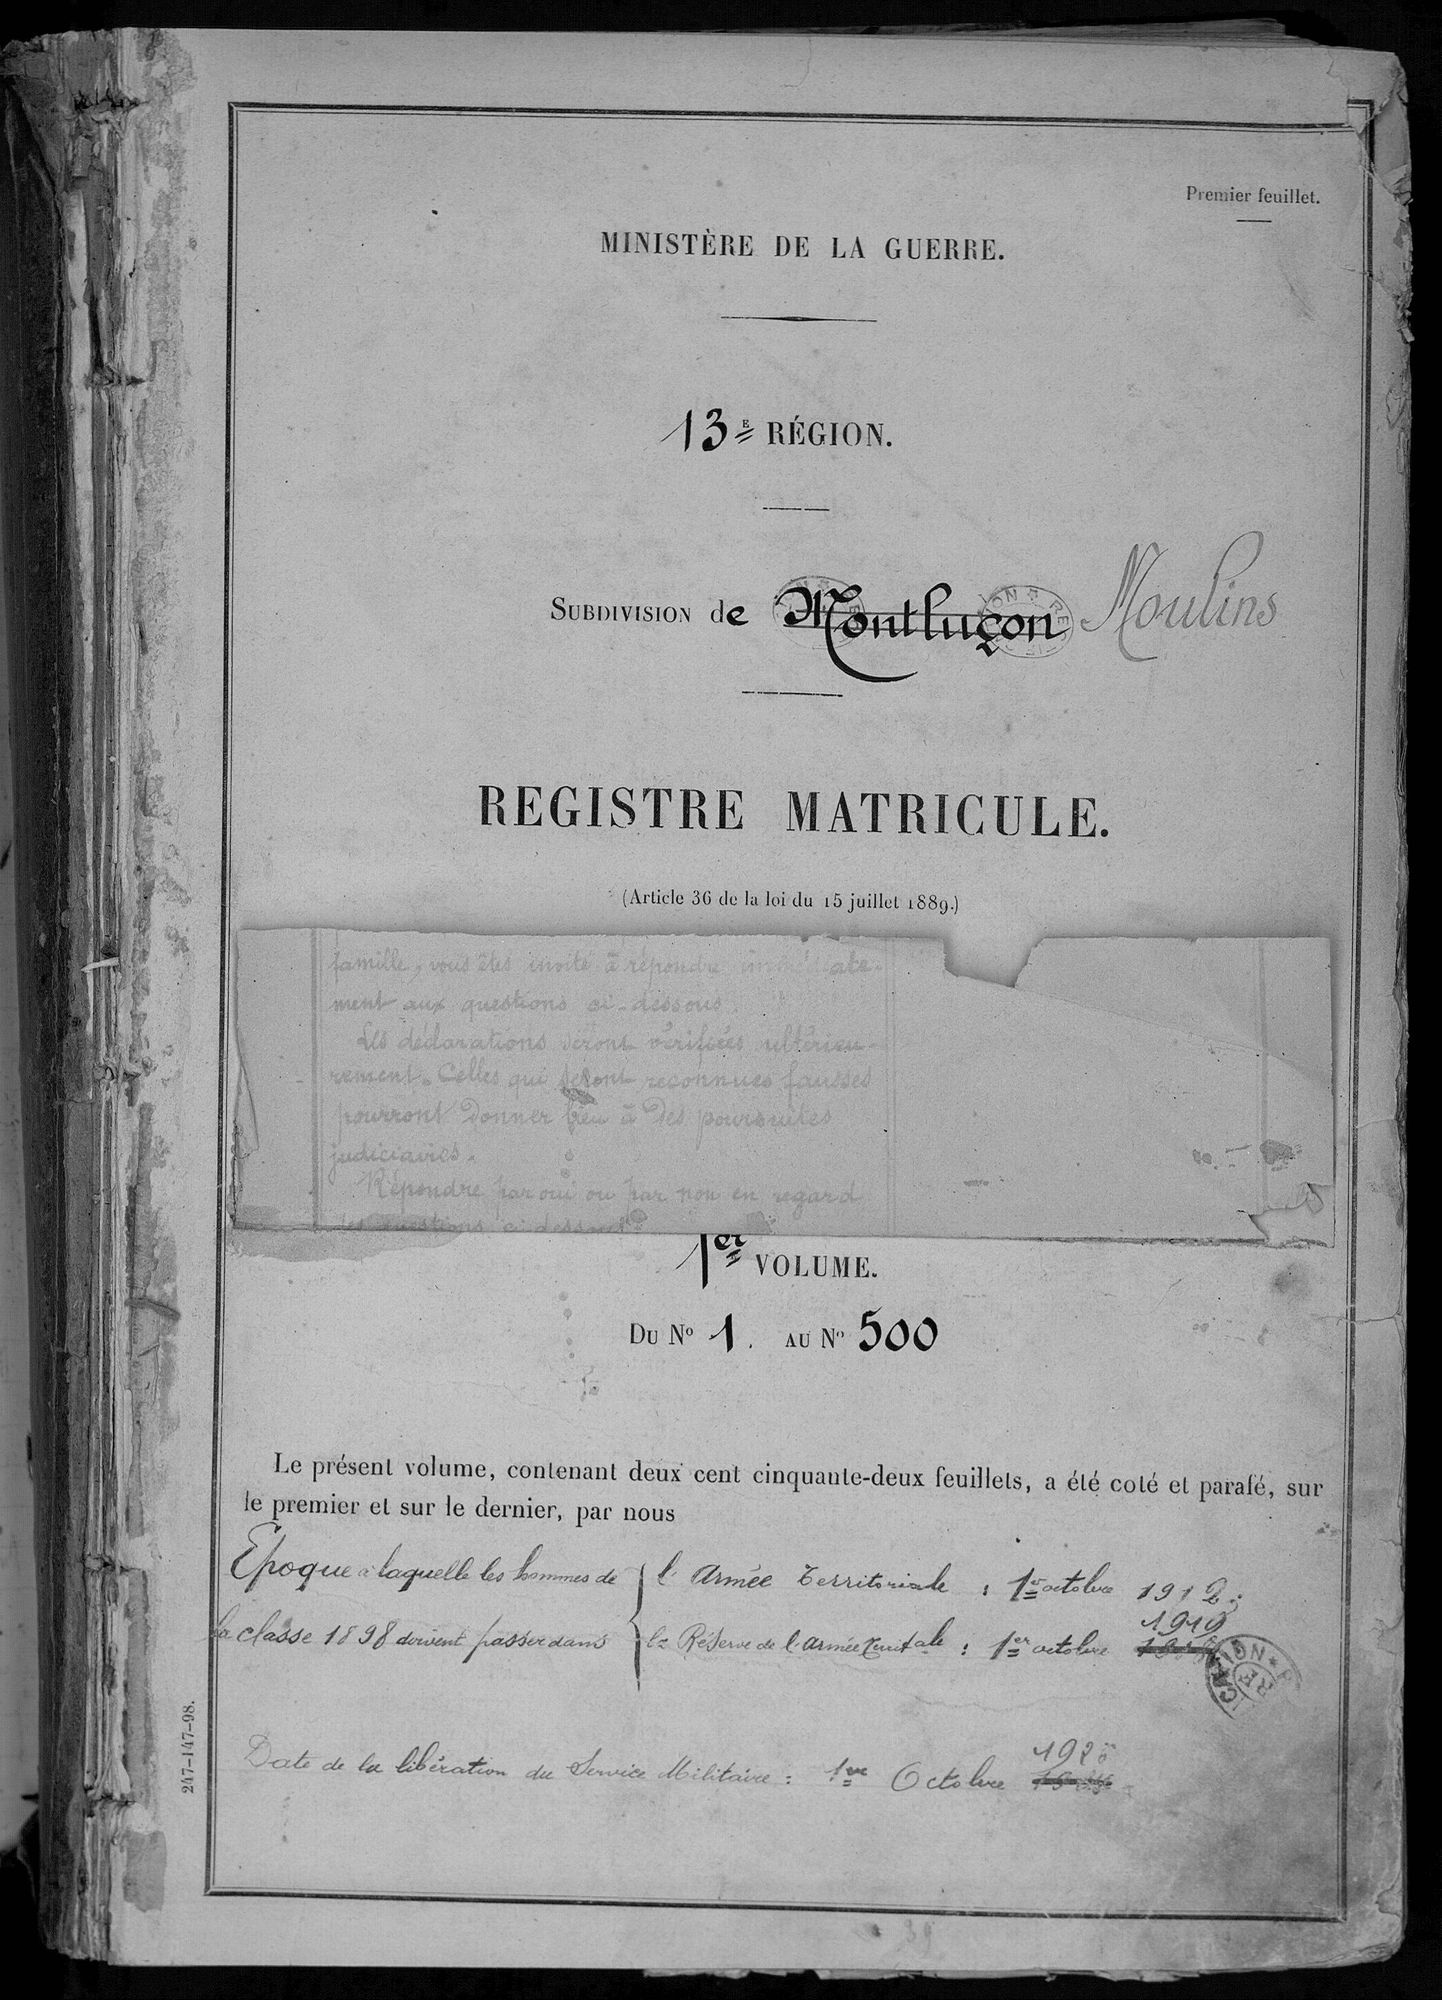 Premier feuillet.
MINISTÈRE DE LA GUERRE.
13E RÉGION.
SUBDIVISION de Montluçon Moulins
REGISTRE MATRICULE.
(Article 36 de la loi du 15 juillet 1889.)
famille, vous êtes invité à répondre
ment aux questions ci-dessous.
Les déclarations seront vérifiées ultérieu-
rement. Celles qui seront reconnues fausses
pourront donner lieu à des poursuites
judiciaires.
Répondre par oui ou par non en regard
des questions ci-dessous
1er VOLUME.
DU No 1. AU No 500
Le présent volume, contenant deux cent cinquante-deux feuillets, a été coté et parafé, sur
le premier et sur le dernier, par nous
Epoque à laquelle les hommes de
la classe 1898 doivent passer dans
l'Armée Territoriale : 1er octobre 1912
1919
la Réserve de l'armée territale : 1er octobre
1925
Date de la libération du Service Militaire : 1er Octobre
247-147-98.